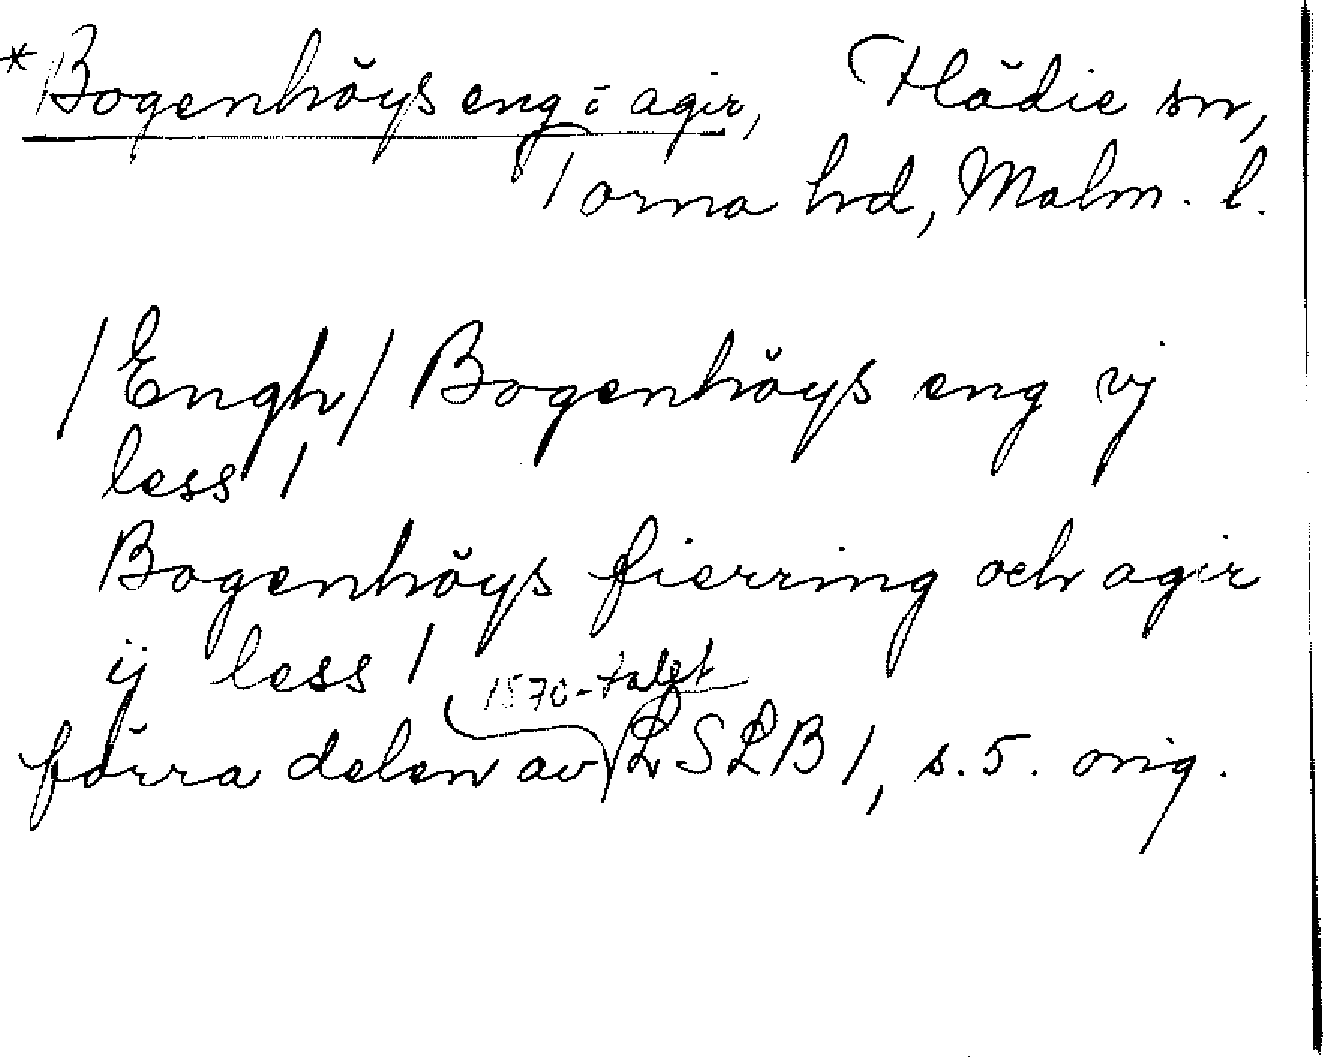 *Bogenhöys eng i agir, Flädie sn,
Torna hd, Malm. l.
/Engh/ Bogenhöys eng vj
less /
Bogenhöys fierring och agir
ij less /
1570-talet
förra delen av LSLB 1, s. 5. orig.